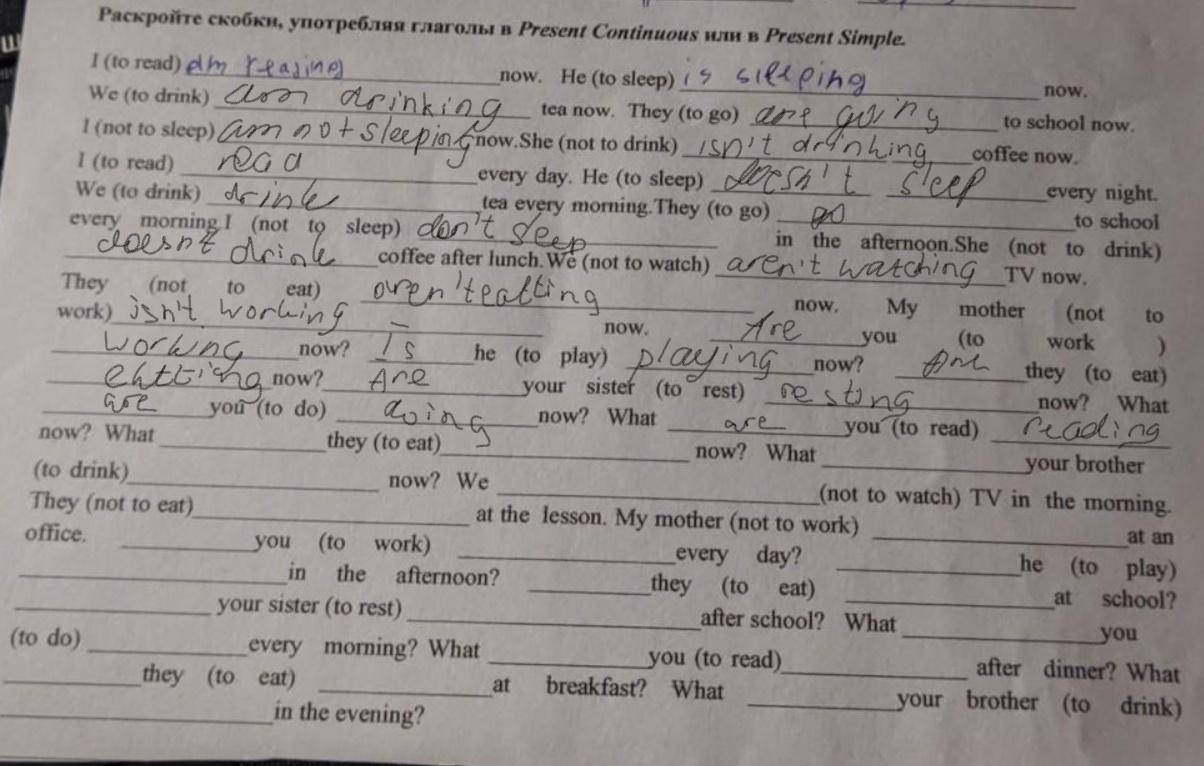 Раскройте скобки, употребляя глаголы в Present Continuous или в Present Simple.
I (to read) am reading now. He (to sleep) is sleeping now.
We (to drink) drinking tea now. They (to go) are going to school now.
I (not to sleep) am not sleeping now.She (not to drink) isn't drinking coffee now.
I (to read) read every day. He (to sleep) doesn't sleep every night.
We (to drink) drink tea every morning.They (to go) go to school
every morning.I (not to sleep) don't sleep in the afternoon.She (not to drink)
doesn't drink coffee after lunch.We (not to watch) aren't watching TV now.
They (not to eat) aren'teatting now. My mother (not to
work) isn't working now. Are you (to work )
working now? Is he (to play) playing now? Are they (to eat)
now? Are your sister (to rest) resting now? What
are you (to do) doing now? What are you (to read) reading
now? What ___ they (to eat) ___ now? What ___ your brother
(to drink) ___ now? We ___ (not to watch) TV in the morning.
They (not to eat) ___ at the lesson. My mother (not to work) ___ at an
office. ___ you (to work) ___ every day? ___ he (to play)
___ in the afternoon? ___ they (to eat) ___ at school?
___ your sister (to rest) ___ after school? What ___ you
(to do) ___ every morning? What ___ you (to read) ___ after dinner? What
___ they (to eat) ___ at breakfast? What ___ your brother (to drink)
___ in the evening?